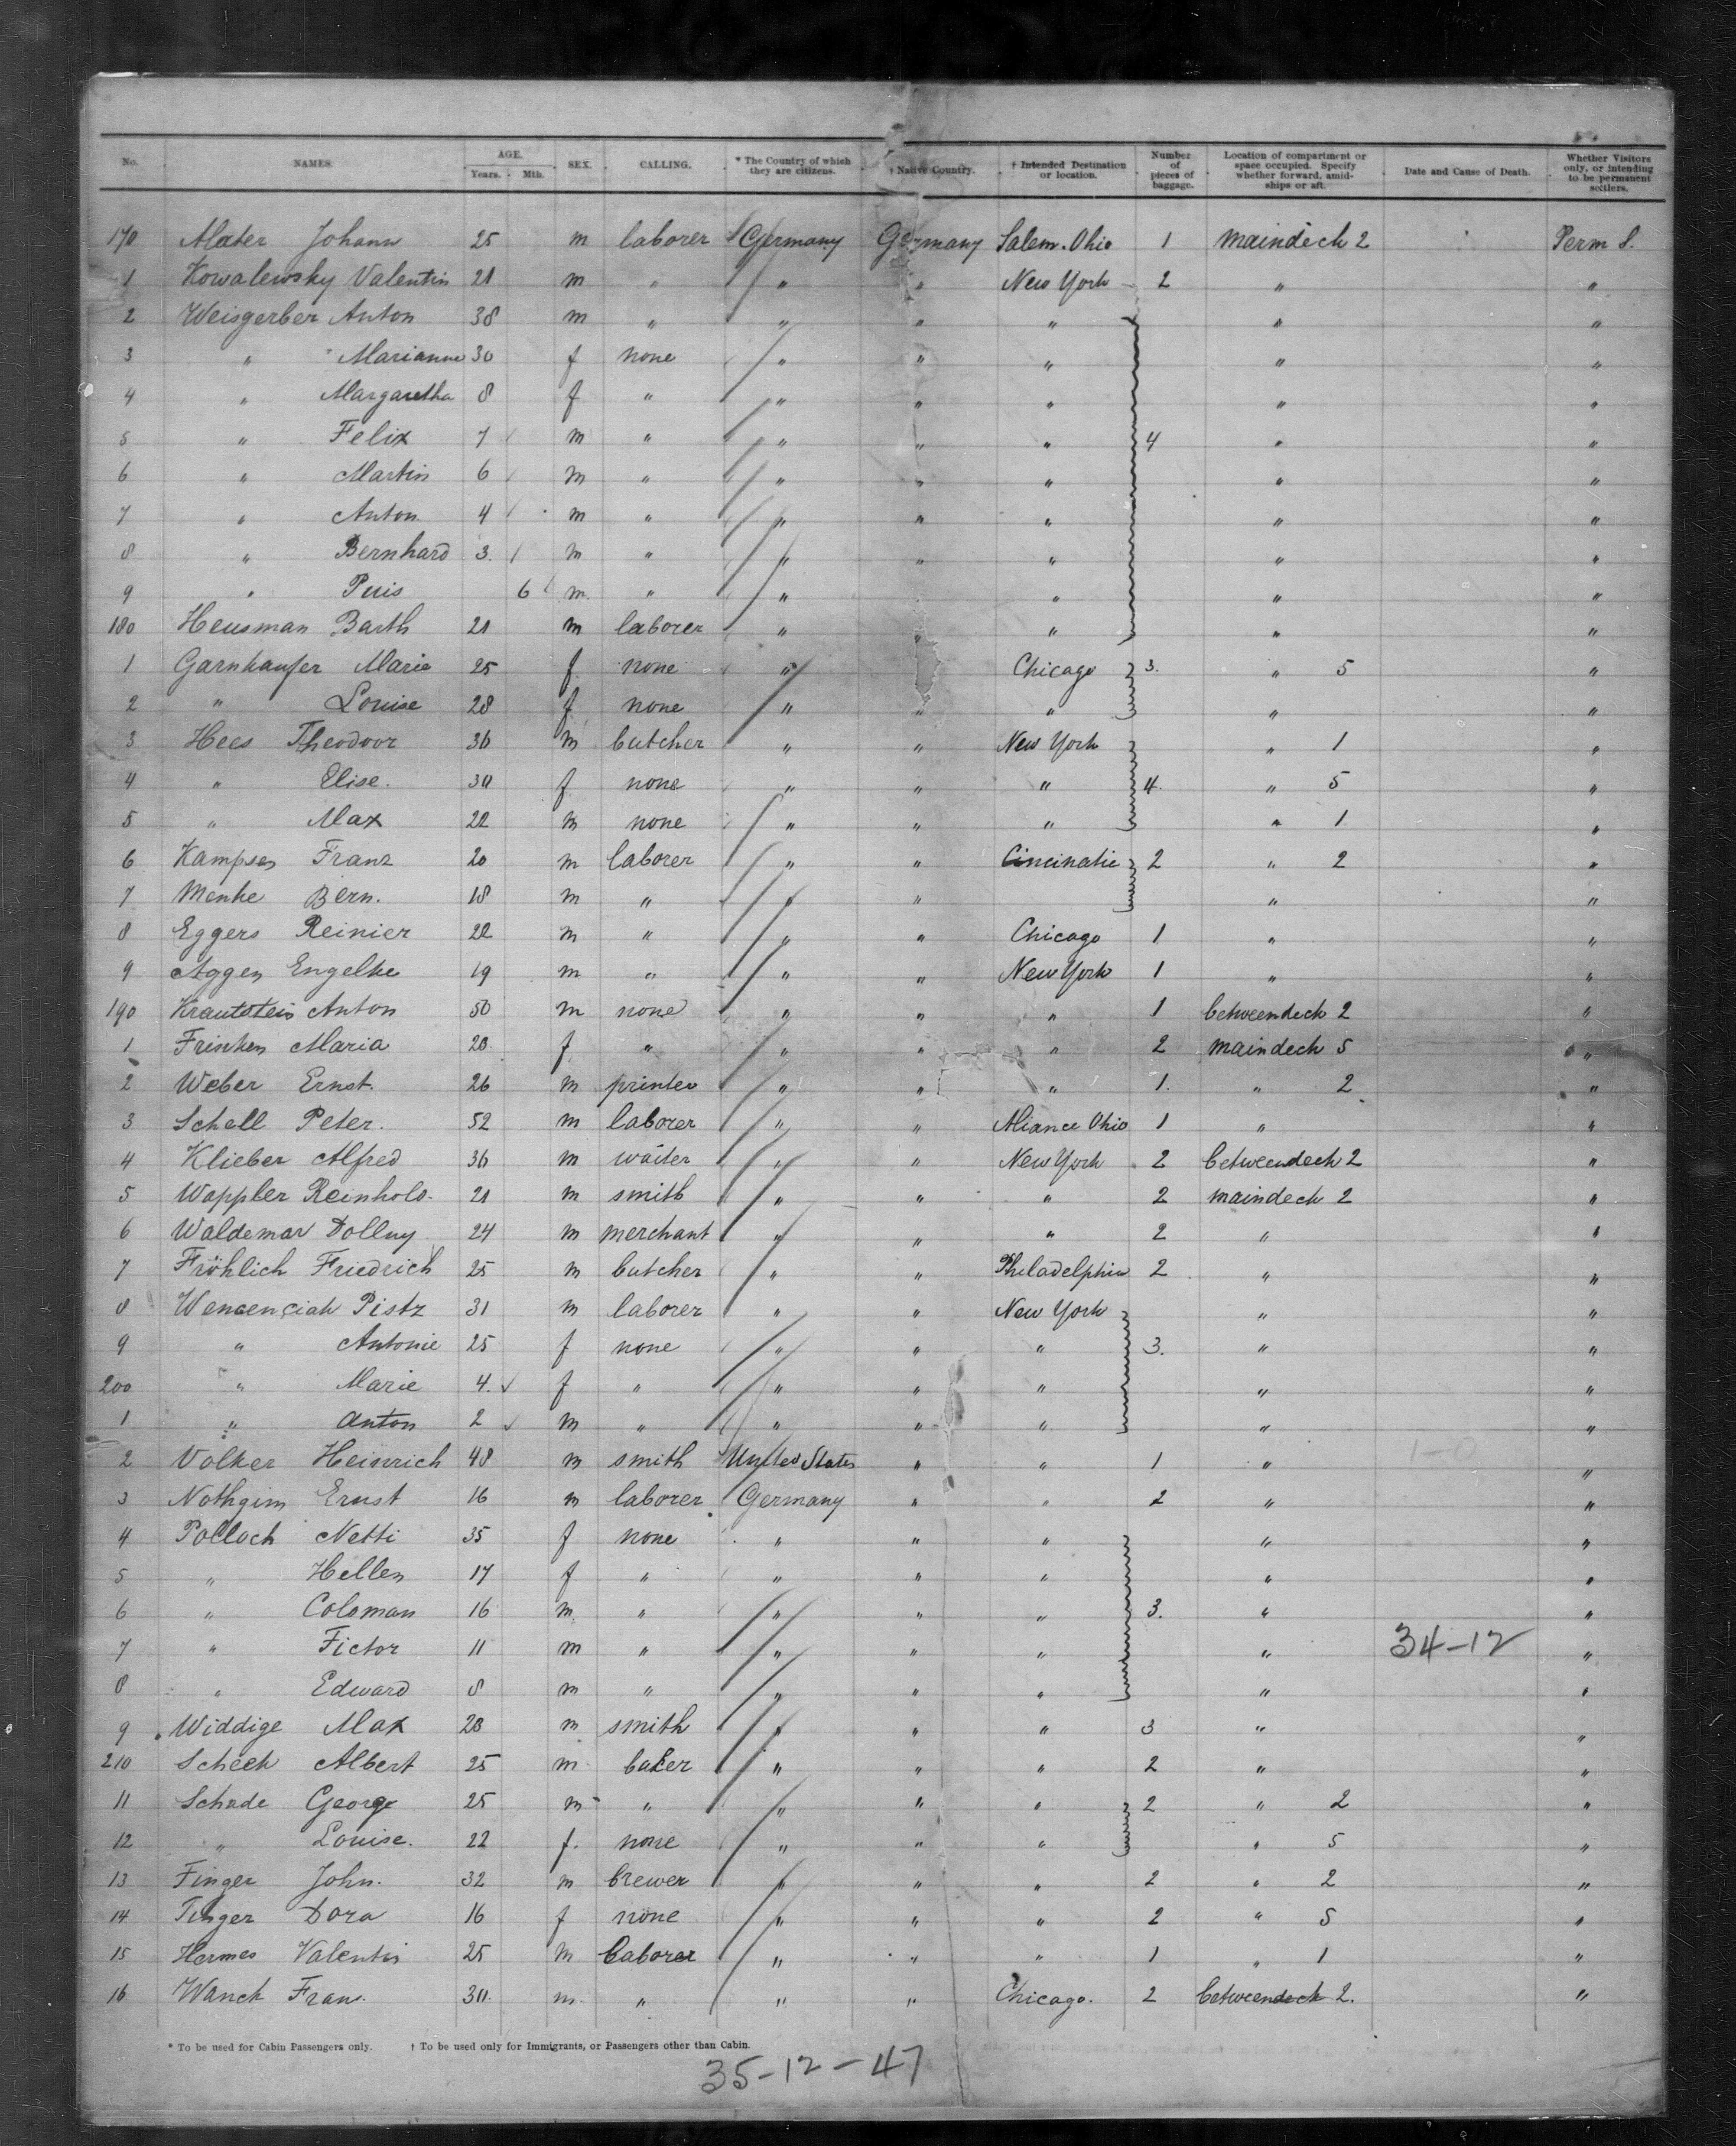 No. NAMES. AGE. Years. Mth. SEX. CALLING. * The Country of which they are citizens. † Native Country. † Intended Destination or location. Number of pieces of baggage. Location of compartment or space occupied. Specify whether forward, amidships or aft. Date and Cause of Death. Whether Visitors only, or intending to be permanent settlers.
170 Mater Johann 25 m laborer Germany Germany Salem. Ohio 1 maindeck 2 Perm S.
1 Kowalewsky Valentin 21 m " " " New York 2 " "
2 Weisgerber Anton 38 m " " " " " "
3 " Marianne 30 f none " " " " "
4 " Margaretha 8 f " " " " " "
5 " Felix 7 m " " " " 4 " "
6 " Martin 6 m " " " " " "
7 " Anton 4 m " " " " " "
8 " Bernhard 3. m " " " " " "
9 " Puis 6 m. " " " " "
180 Heusman Barth 21 m laborer " " " " "
1 Garnhaufer Marie 25 f none " Chicago 3. " 5 "
2 " Louise 28 f none " " " " "
3 Hees Theodoor 36 m butcher " " New York " 1 "
4 " Elise. 30 f none " " " 4. " 5 "
5 " Max 22 m none " " " " 1 "
6 Kampsen Franz 20 m laborer " " Cincinatie 2 " 2 "
7 Menke Bern. 18 m " " " " "
8 Eggers Reinier 22 m " " " Chicago 1 " "
9 Aggen Engelke 19 m " " " New York 1 " "
190 Krautstein Anton 50 m none " " " 1 betweendeck 2 "
1 Frinken Maria 28. f " " " " 2 maindeck 5 "
2 Weber Ernst. 26 m printer " " " 1. " 2 "
3 Schell Peter. 52 m laborer " " Aliance Ohio 1 " "
4 Klieber Alfred 36 m waiter " " New York 2 betweendeck 2 "
5 Wappler Reinhold. 21 m smith " " " 2 maindeck 2 "
6 Waldemar Dollny 24 m merchant " " " 2 " "
7 Fröhlich Friedrich 25 m butcher " " Philadelphia 2 " "
8 Wencenciah Pistz 31 m laborer " " New York " "
9 " Antonie 25 f none " " " 3. " "
200 " Marie 4. f " " " " " "
1 " Anton 2 m " " " " " "
2 Volker Heinrich 48 m smith United States " " 1 " "
3 Nothgim Ernst 16 m laborer Germany " " 2 " "
4 Polloch Netti 35 f none " " " " "
5 " Hellen 17 f " " " " " "
6 " Coloman 16 m " " " " 3. " "
7 " Fictor 11 m " " " " " 34-12 "
8 " Edward 8 m " " " " " "
9 Widdige Max 28 m smith " " " 3 " "
210 Scheck Albert 25 m baker " " " 2 " "
11 Schade George 25 m " " " " 2 " 2 "
12 " Louise. 22 f. none " " " " 5 "
13 Finger John. 32 m brewer " " " 2 " 2 "
14 Tinger Dora 16 f none " " " 2 " 5 "
15 Hermes Valentin 25 m laborer " " " 1 " 1 "
16 Wanck Frans. 30. m. " " " Chicago. 2 betweendeck 2. "
* To be used for Cabin Passengers only. † To be used only for Immigrants, or Passengers other than Cabin.
35-12-47